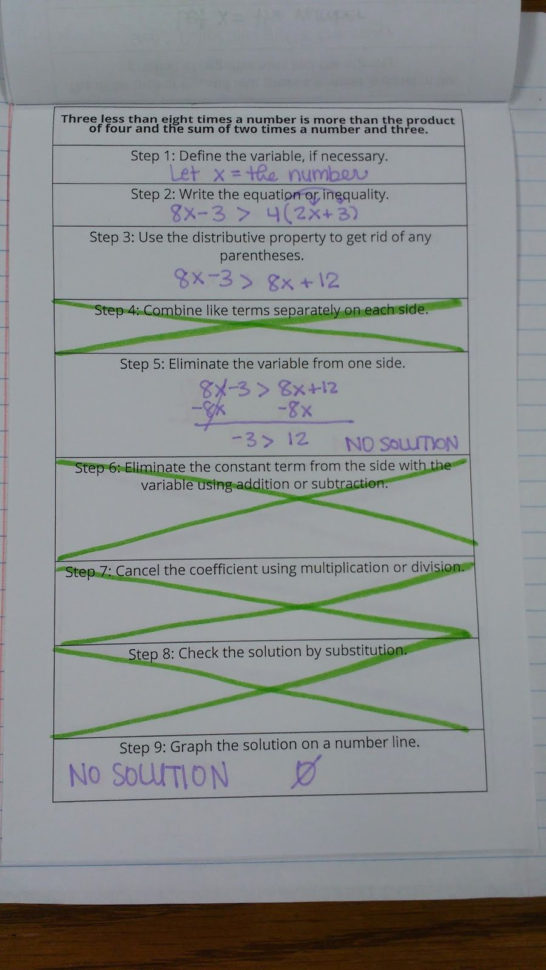 Three less than eight times a number is more than the product
of four and the sum of two times a number and three.
Step 1: Define the variable, if necessary.
Let x = the number
Step 2: Write the equation or inequality.
8x-3 > 4(2x+3)
Step 3: Use the distributive property to get rid of any
parentheses.
8x-3 > 8x+12
Step 4: Combine like terms separately on each side.
Step 5: Eliminate the variable from one side.
8x-3 > 8x+12
-8x -8x
-3 > 12 NO SOLUTION
Step 6: Eliminate the constant term from the side with the
variable using addition or subtraction.
Step 7: Cancel the coefficient using multiplication or division.
Step 8: Check the solution by substitution.
Step 9: Graph the solution on a number line.
NO SOLUTION Ø